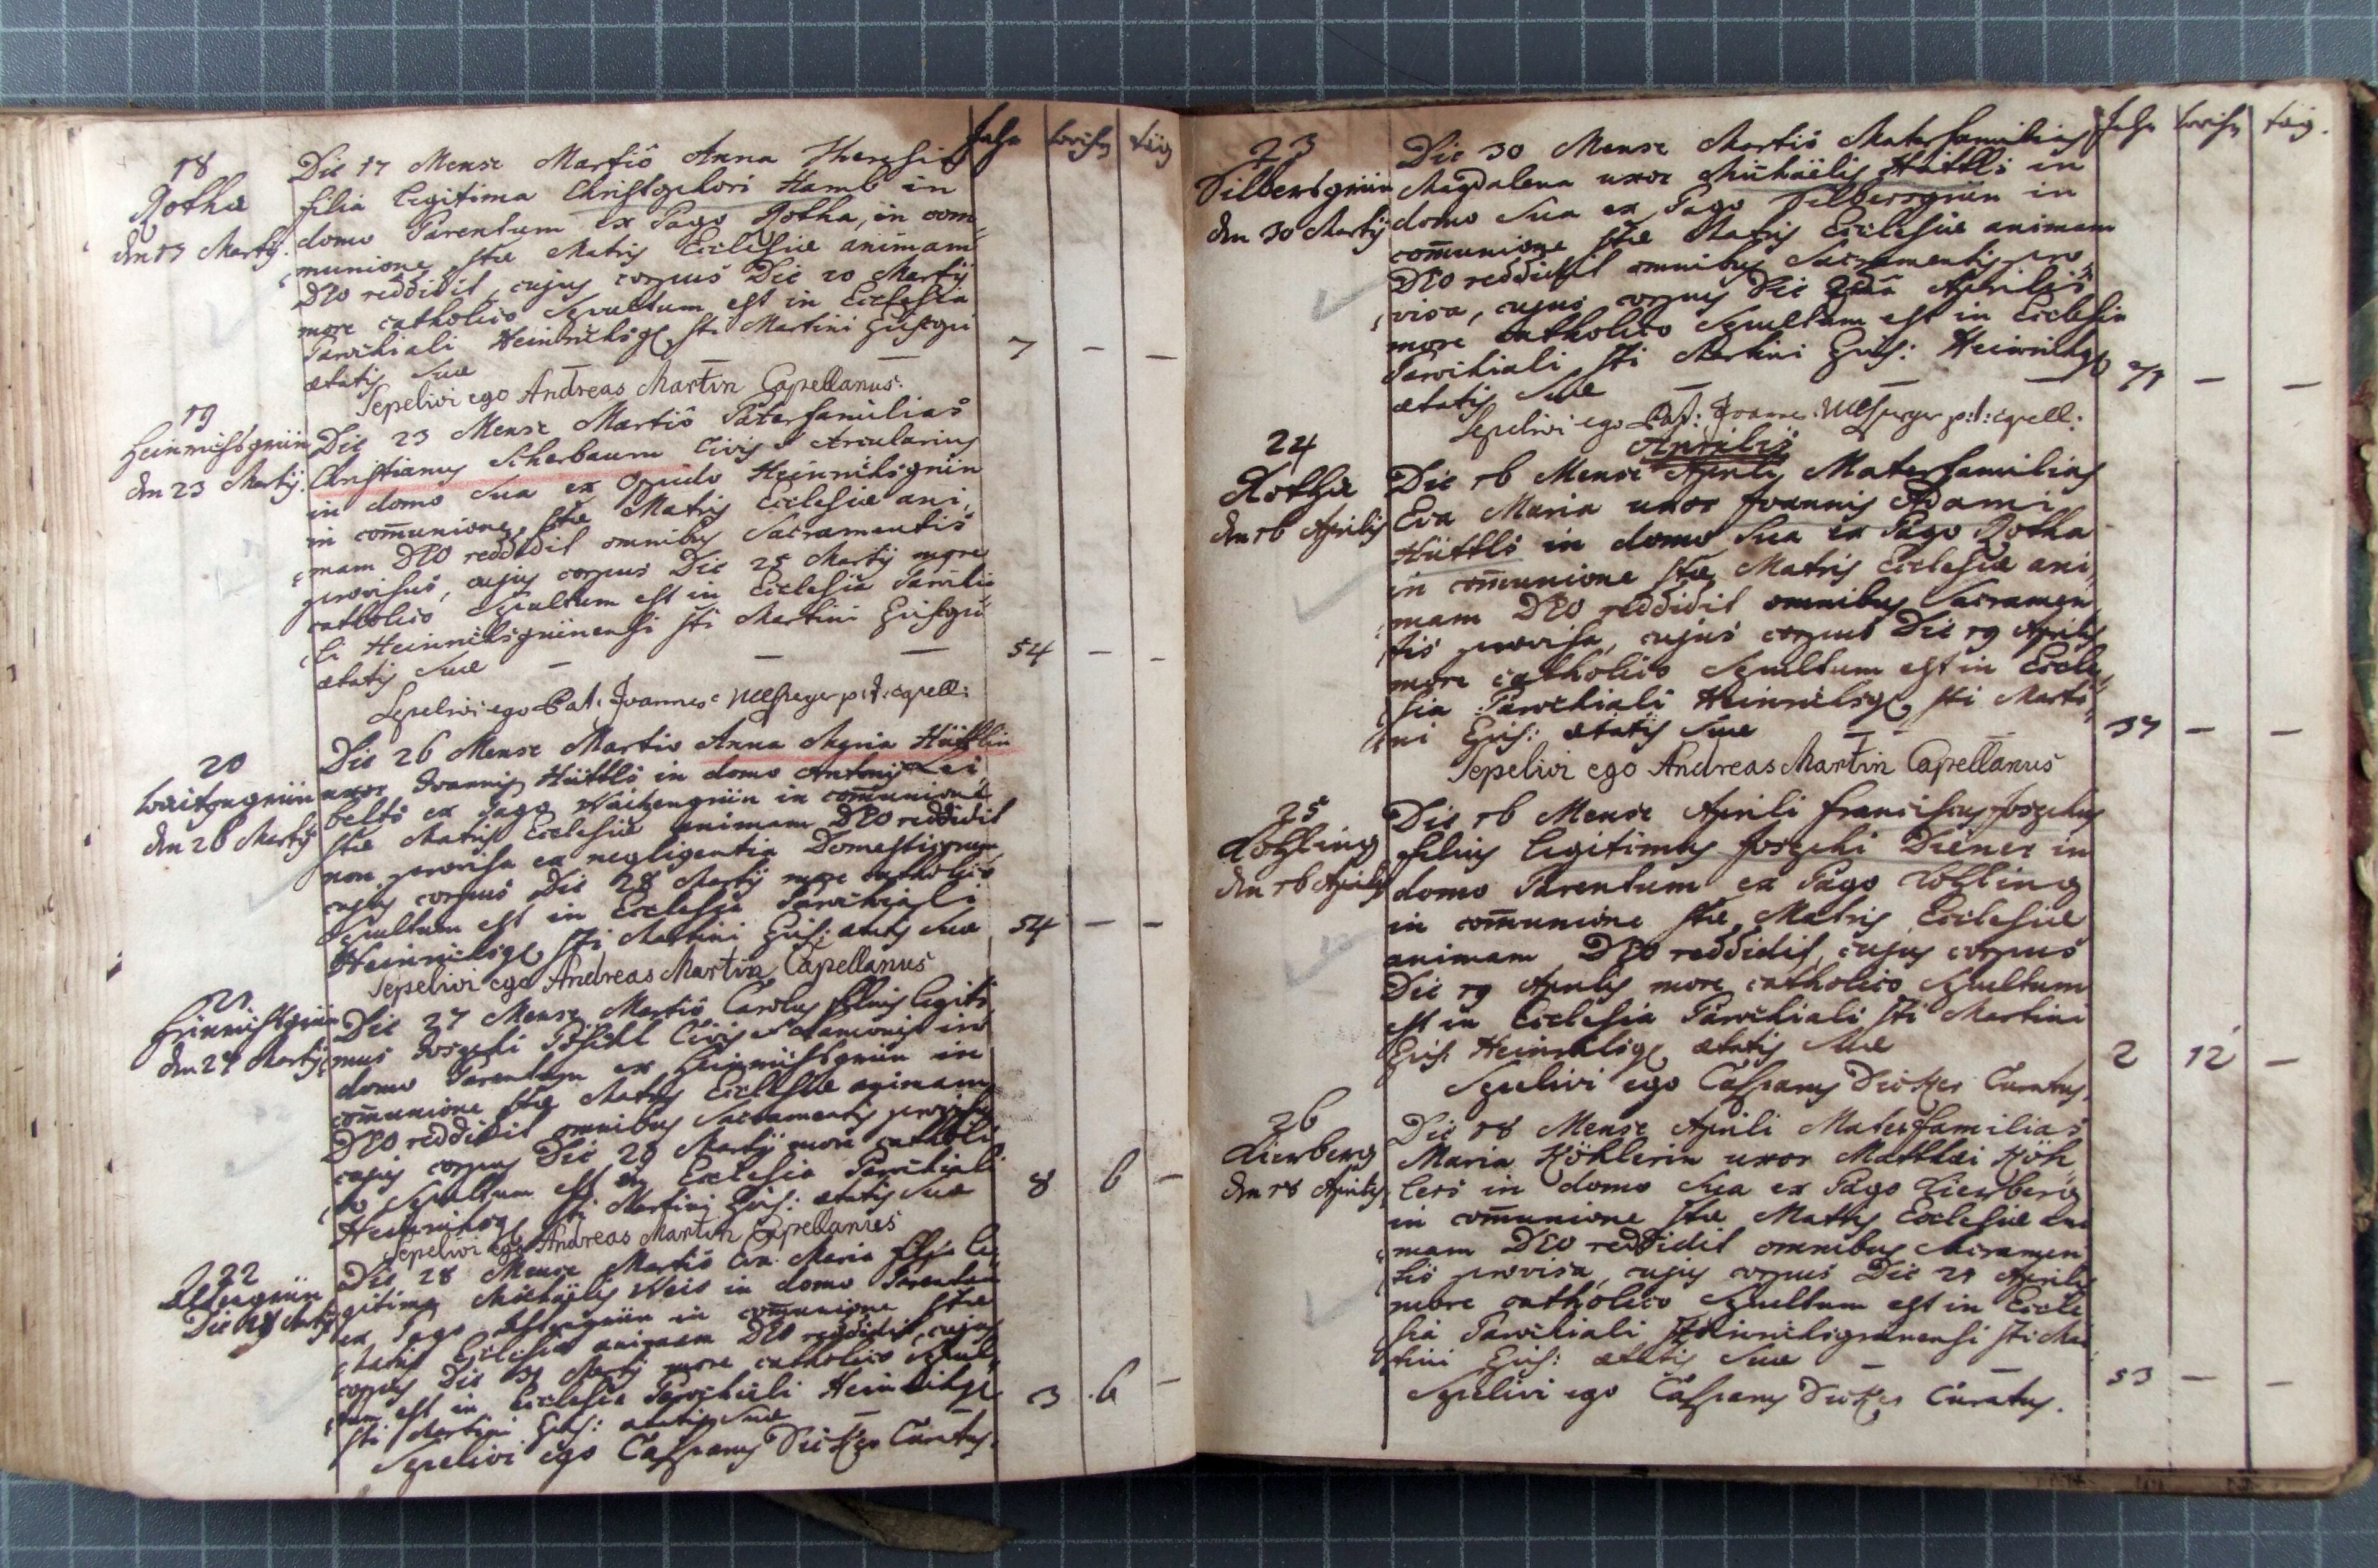 Jahr wochn täg
18
Rotha
den 17 Martij.
Die 17 Mense Martio Anna Theresia
filia legitima Christophori Hamb in
domo Parentum ex Pago Rotha, in com
munione stæ Matris Ecclesiæ animam
DEO reddidit, cujus corpus Die 20 Martij
more catholico Sepultum est in Ecclesia
Parochiali Heinrichsg sti Martini Episcopi
ætatis Suæ — — 7 — —
Sepelivi ego Andreas Martin Capellanus.
19
Heinrichsgrün
den 23 Martij.
Die 23 Mense Martio Paterfamilias
Christianus Scherbaum Civis et Arcularius
in domo Sua ex Opido Heinrichsgrün
in com̄unione stæ Matris Ecclesiæ ani
mam DEO reddidit omnibus Sacramentis
provisus, cujus corpus Die 25 Martij more
catholico Sepultum est in Ecclesia Parochia
li Heinrichsgrünensi sti Martini Episcopi
ætatis Suæ — — — 54 — —
Sepelivi ego Pat: Joannes p:t: capell:
20
Waitzengrün
den 26 Martij
Die 26 Mense Martio Anna Maria Hüttlin
uxor Joannis Hüttls in domo Antonij Lei
belts ex Pago Waitzengrün in com̄unione
stæ Matris Ecclesiæ animam DEO reddidit
non provisa ex negligentia Domesticorum
cujus corpus Die 28 Martij more catholico
Sepultum est in Ecclesia Parochiali
Heinrichsg sti Martini Epis: ætatis Suæ 54 — —
Sepelivi ego Andreas Martin Capellanus
21.
Heinrichsgrün
den 27 Martij
Die 27 Mense Martio Carolus filius legiti
mus Josephi Pöschl Civis et in
domo Parentum ex Heinrichsgrün in
com̄unione stæ Matris Ecclesiæ animam
DEO reddidit omnibus Sacramentis provisus
cujus corpus Die 29 Martij more catholi
co Sepultum est in Ecclesia Parochiali
Heinrichsg sti Martini Epis: ætatis Suæ 8 6 —
Sepelivi ego Andreas Martin Capellanus
22
Die 28 Martij
Die 28 Mense Martio Eva Maria filia le
gitima Michaëlis Weis in domo Parentum
ex Pago in com̄unione stæ
Matris Ecclesiæ animam DEO reddidit, cujus
corpus Die 31 Martij more catholico Sepul
tum est in Ecclesia Parochiali Heinrichsg
sti Martini Epis: ætatis Suæ — — 3 6 —
Sepelivi ego Casparus Dietzer Curatus.
Jahr wochn täg.
23
Silbersgrün
den 30 Martij
Die 30 Mense Martio Materfamilias
Magdalena uxor Michaëlis Hüttls in
domo Sua ex Pago Silbersgrün in
com̄unione stæ Matris Ecclesiæ animam
DEO reddidit omnibus Sacramentis pro
visa, cujus corpus Die 2da Aprilis
more catholico Sepultum est in Ecclesia
Parochiali sti Martini Epis: Heinrichsg
ætatis Suæ — — — 71 — —
Sepelivi ego Pat: Joannes p:t: capell:
Aprilis
24
Rotha
den 16 Aprilis
Die 16 Mense Aprilis Materfamilias
Eva Maria uxor Joannis Adami
Hüttls in domo Sua ex Pago Rotha
in com̄unione stæ Matris Ecclesiæ ani
mam DEO reddidit omnibus Sacramen
tis provisa, cujus corpus Die 19 Aprilis
more catholico Sepultum est in Eccle
sia Parochiali Heinrichsg sti Marti
ni Epis: ætatis Suæ — — 37 — —
Sepelivi ego Andreas Martin Capellanus
25
Kohling
den 16 Aprilis
Die 16 Mense Aprili Franciscus Josephus
filius legitimus Josephi Diener in
domo Parentum ex Pago Kohling
in com̄unione stæ Matris Ecclesiæ
animam DEO reddidit, cujus corpus
Die 19 Aprilis more catholico Sepultum
est in Ecclesia Parochiali sti Martini
Epis: Heinrichsg ætatis Suæ 2 12 —
Sepelivi ego Casparus Dietzer Curatus.
26
Lierberg
den 18 Aprilis
Die 18 Mense Aprili Materfamilias
Maria Köhlerin uxor Matthæi Köh
lers in domo Sua ex Pago Lierberg
in com̄unione stæ Matris Ecclesiæ ani
mam DEO reddidit omnibus Sacramen
tis provisa, cujus corpus Die 21 Aprilis
more catholico Sepultum est in Eccle
sia Parochiali Heinrichsgrünensi sti Mar
tini Epis: ætatis Suæ — — 53 — —
Sepelivi ego Casparus Dietzer Curatus.